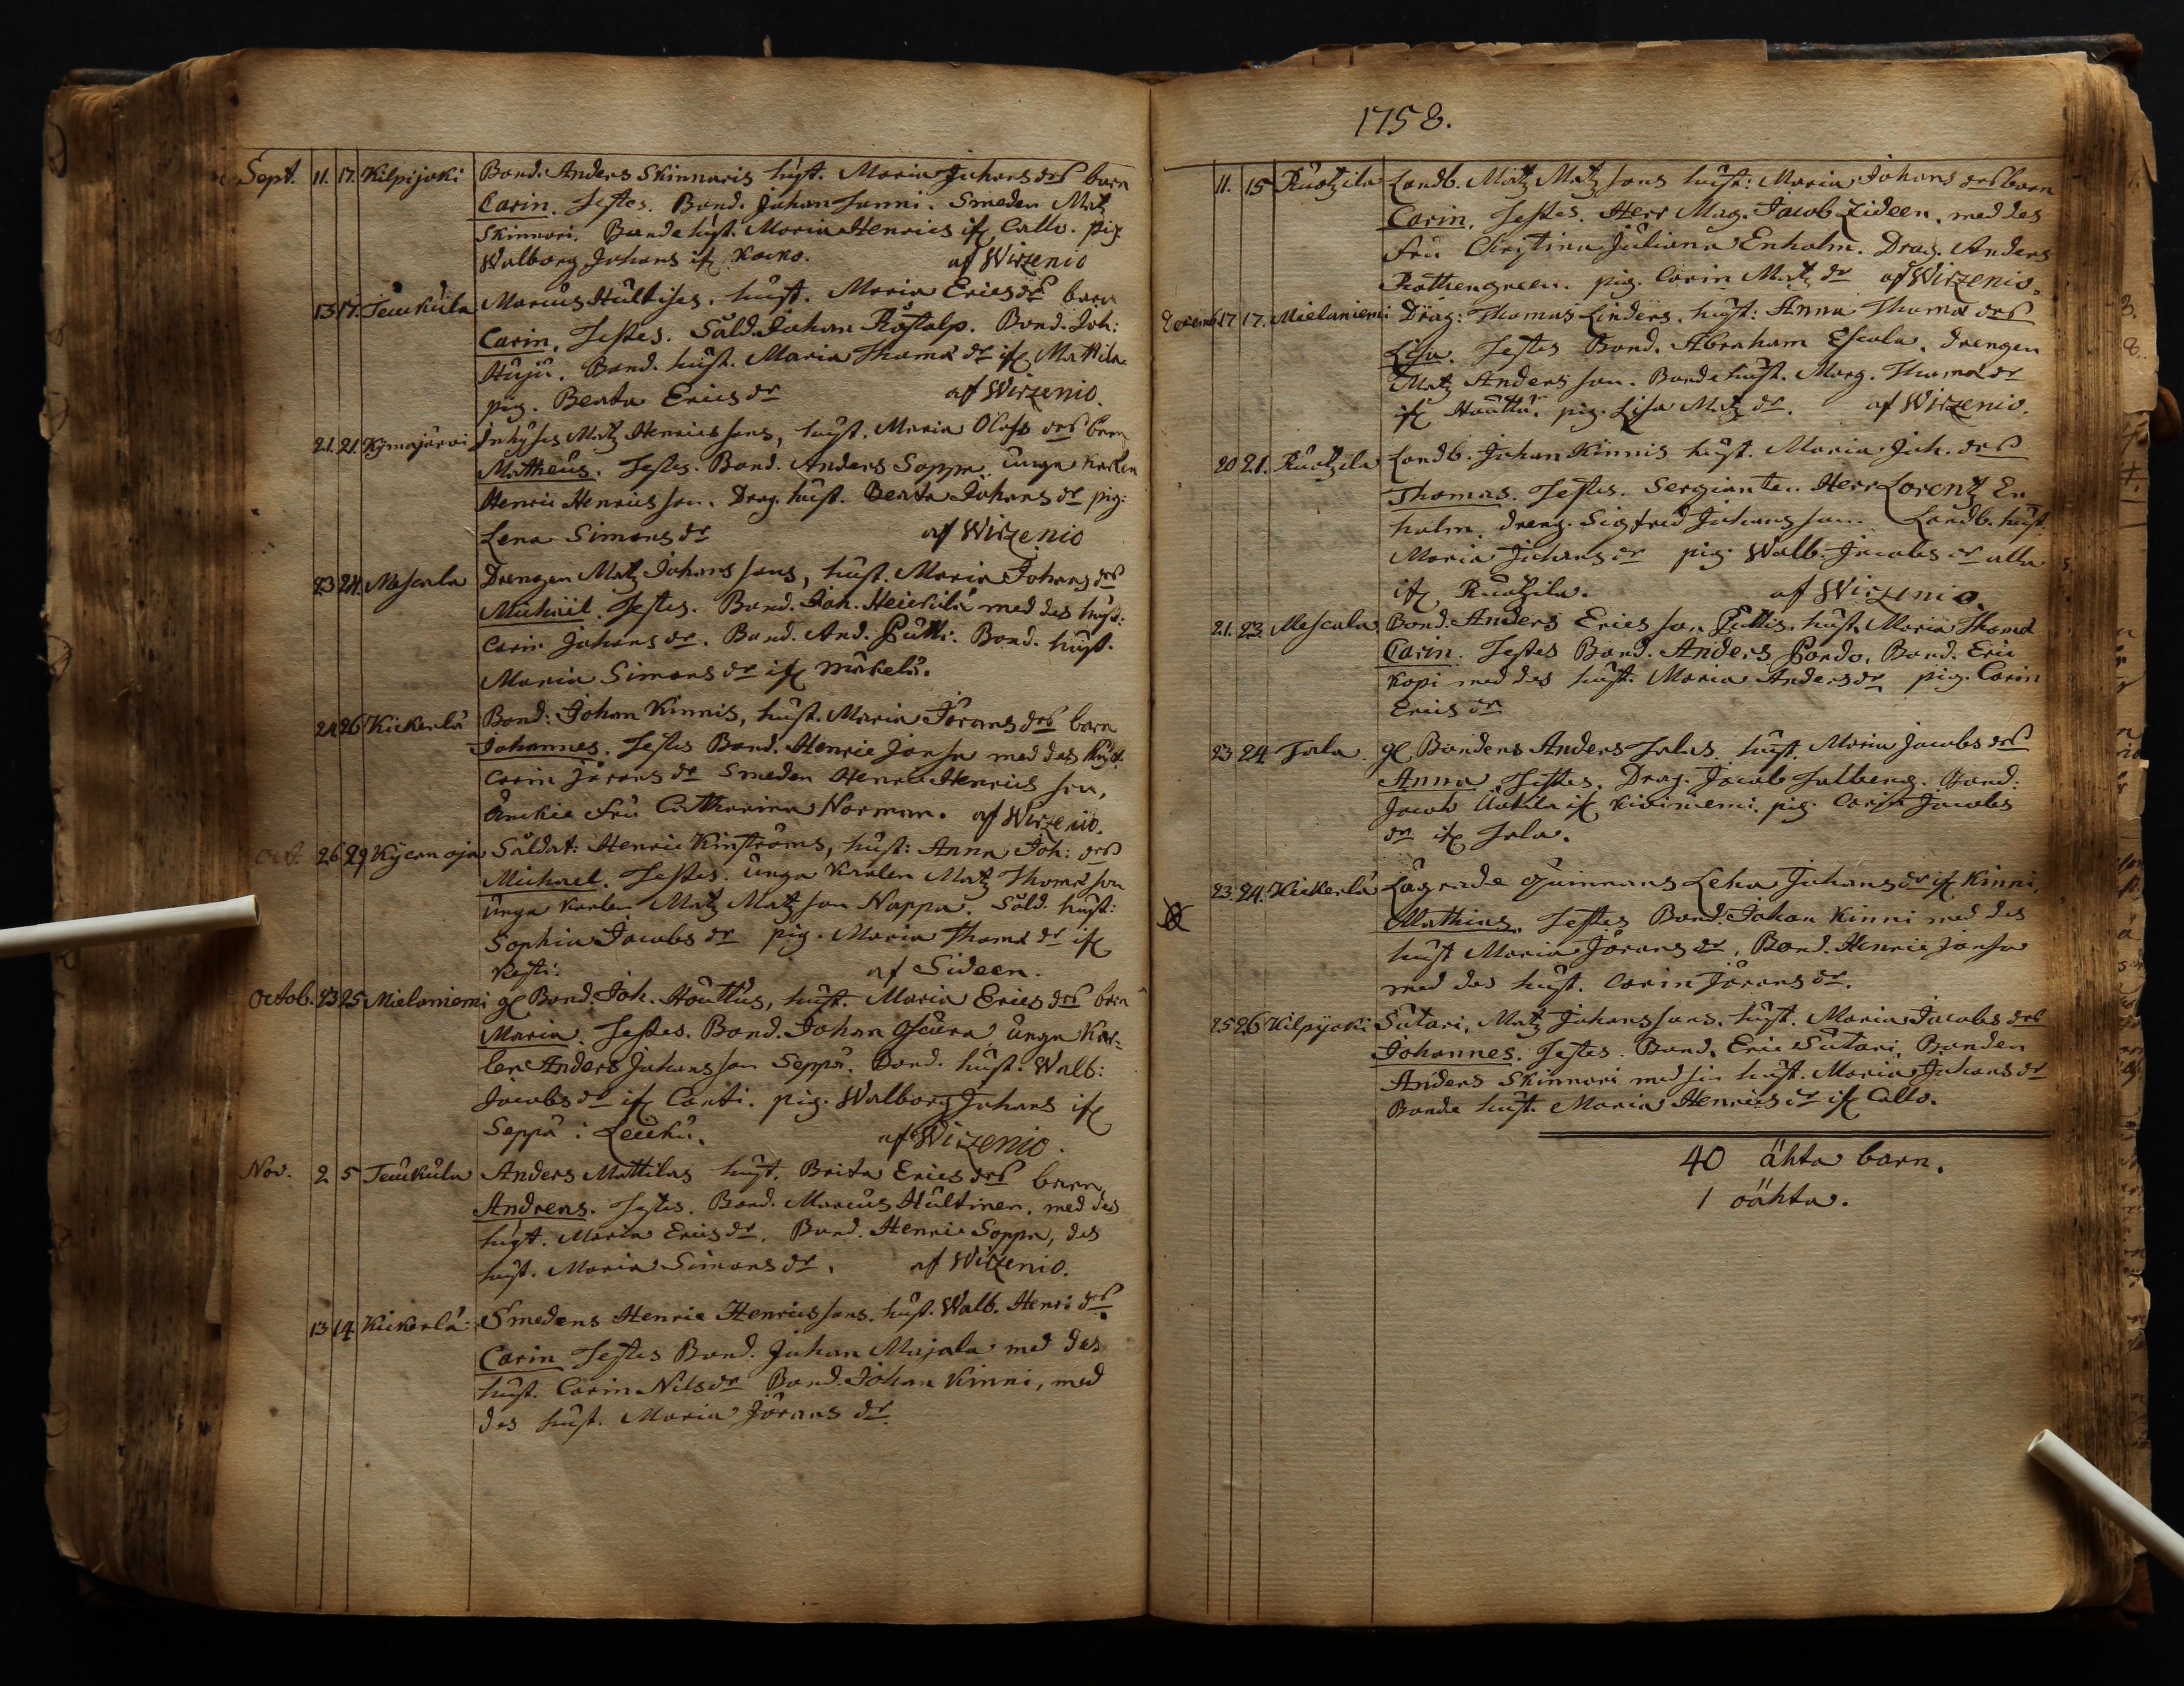 Sept. 11. 17. Kilpijoki Bond. Anders Skinnaris hust. Maria Johans drs barn
Carin. Testes. Bond. Johan Sanni. Smeden Matz
Skinnari. Bonde hust. Maria Henrics ifr Callo. pig.
Walborg Johans ifr Kocko. af Wirzenio
13 17. Teuckula Marcus Hultises, hust. Maria Erics drs barn
Carin. Testes. Såld. Johan Råstalp. Bond. Joh:
Huju. Bond. hust. Maria Thomæ dr ifr Mattila
pig. Beata Erics dr af Wirzenio.
21. 21. Kymajärvi Inhyses Matz Henrics sons, hust. Maria Olofs drs barn
Mattheus. Testes. Bond. Anders Soppa. Unga karlen
Henric Henrics son. Drag. hust. Beata Johans dr pig:
Lena Simons dr af Wirzenio
23 24. Mascala Drengen Matz Johans sons, hust. Maria Johans drs
Michäel. Testes. Bond. Joh. Heickilä med des hust:
Carin Johans dr. Bond. And. Putti. Bond. hust.
Maria Simons dr ifr Mäkelä.
24 26 Kickerlä Bond: Johan Kinnis, hust. Maria Jörans drs barn
Johannes. Testes Bond. Henric Jonsa med des hust.
Carin Jörans dr Smeden Henric Henrics son,
Änckie Fru Catharina Norman. af Wirzenio.
Oct. 26 29 Kycenoja Såldat: Henric Kinströms, hust: Anna Joh: drs
Michael. Testes. Unga Karlen Matz Thomæ son
Unga Karlen Matz Matz son Nappa. Såld. hust:
Sophia Jacobs dr pig. Maria Thomæ dr ifr
Kesti. af Sideen.
Octob. 23 25 Mielaniemi gl Bond. Joh. Houttus, hust. Maria Erics drs barn
Maria. Testes. Bond. Johan Scura, Unga Kar-
len Anders Johans son Seppä. Bond. hust. Walb:
Jacobs dr ifr Conti. pig. Walborg Johans ifr
Seppä i Leuku. af Wirzenio.
Nov. 2 5 Teuckula Anders Mattilas hust. Brita Erics drs barn
Andreas. Testes. Bond. Marcus Hultinen, med des
hust. Maria Erics dr. Bond. Henric Soppa, des
hust. Maria Simons dr. af Wirzenio.
13 14 Kickerlä Smedens Henric Henrics sons. hust. Walb. Henri drs
Carin Testes Bond. Johan Majala med des
hust. Carin Nils dr Bond. Johan Kinni, med
des hust. Maria Jörans dr.
1758.
11. 15 Ruotzila Landb. Matz Matz sons hust: Maria Johans drs barn
Carin. Testes. Herr Mag. Jacob Zideen, med des
Fru Christina Juliana Enholm. Drag. Anders
Rothengreen. pig. Carin Matz dr af Wirzenio.
Decemb 17 17. Mielaniemi Drag: Thomas Linders, hust: Anna Thomæ drs
Lisa. Testes Bond. Abraham Escola. Drengen
Matz Anders son. Bonde hust. Marg. Thomæ dr
ifr Houttu. pig. Lisa Matz dr. af Wirzenio.
20 21. Ruotzila Landb. Johan Kinnis hust. Maria Joh. drs
Thomas. Testes. Sergianten Herr Lorentz En
holm. dreng. Sigfred Johans son. Landb. hust.
Maria Johans dr pig. Walb. Jacobs dr alla
ifr Ruotzila. af Wirzenio.
21. 23. Mascala. Bond. Anders Erics son Puttis. hust. Maria Thomæ
Carin. Testes Bond. Anders Pordo. Bond. Eric
Kopi med des hust. Maria Anders dr pig. Carin
Erics dr
23 24 Jala. gl Bondens Anders Jalas. hust. Maria Jacobs drs
Anna Testes. Drag. Jacob Salberg. Bond:
Jacob Uotila ifr Kiviniemi. pig. Carin Jacobs
dr ifr Jala.
23. 24. Kickerlä Lägrade Quinnans Lena Johans dr ifr Kinni.
Mathias. Testes Bond. Johan Kinni med des
hust Maria Jörans dr. Bond. Henric Jonsa
med des hust. Carin Jörans dr.
25 26 Kilpijoki Sutari, Matz Johans sons. hust. Maria Jacobs drs
Johannes. Testes. Bond. Eric Sutari. Bonden
Anders Skinnari med sin hust. Maria Johans dr
Bonde hust. Maria Henrics dr ifr Callo.
40 ähta barn.
1 oähta.